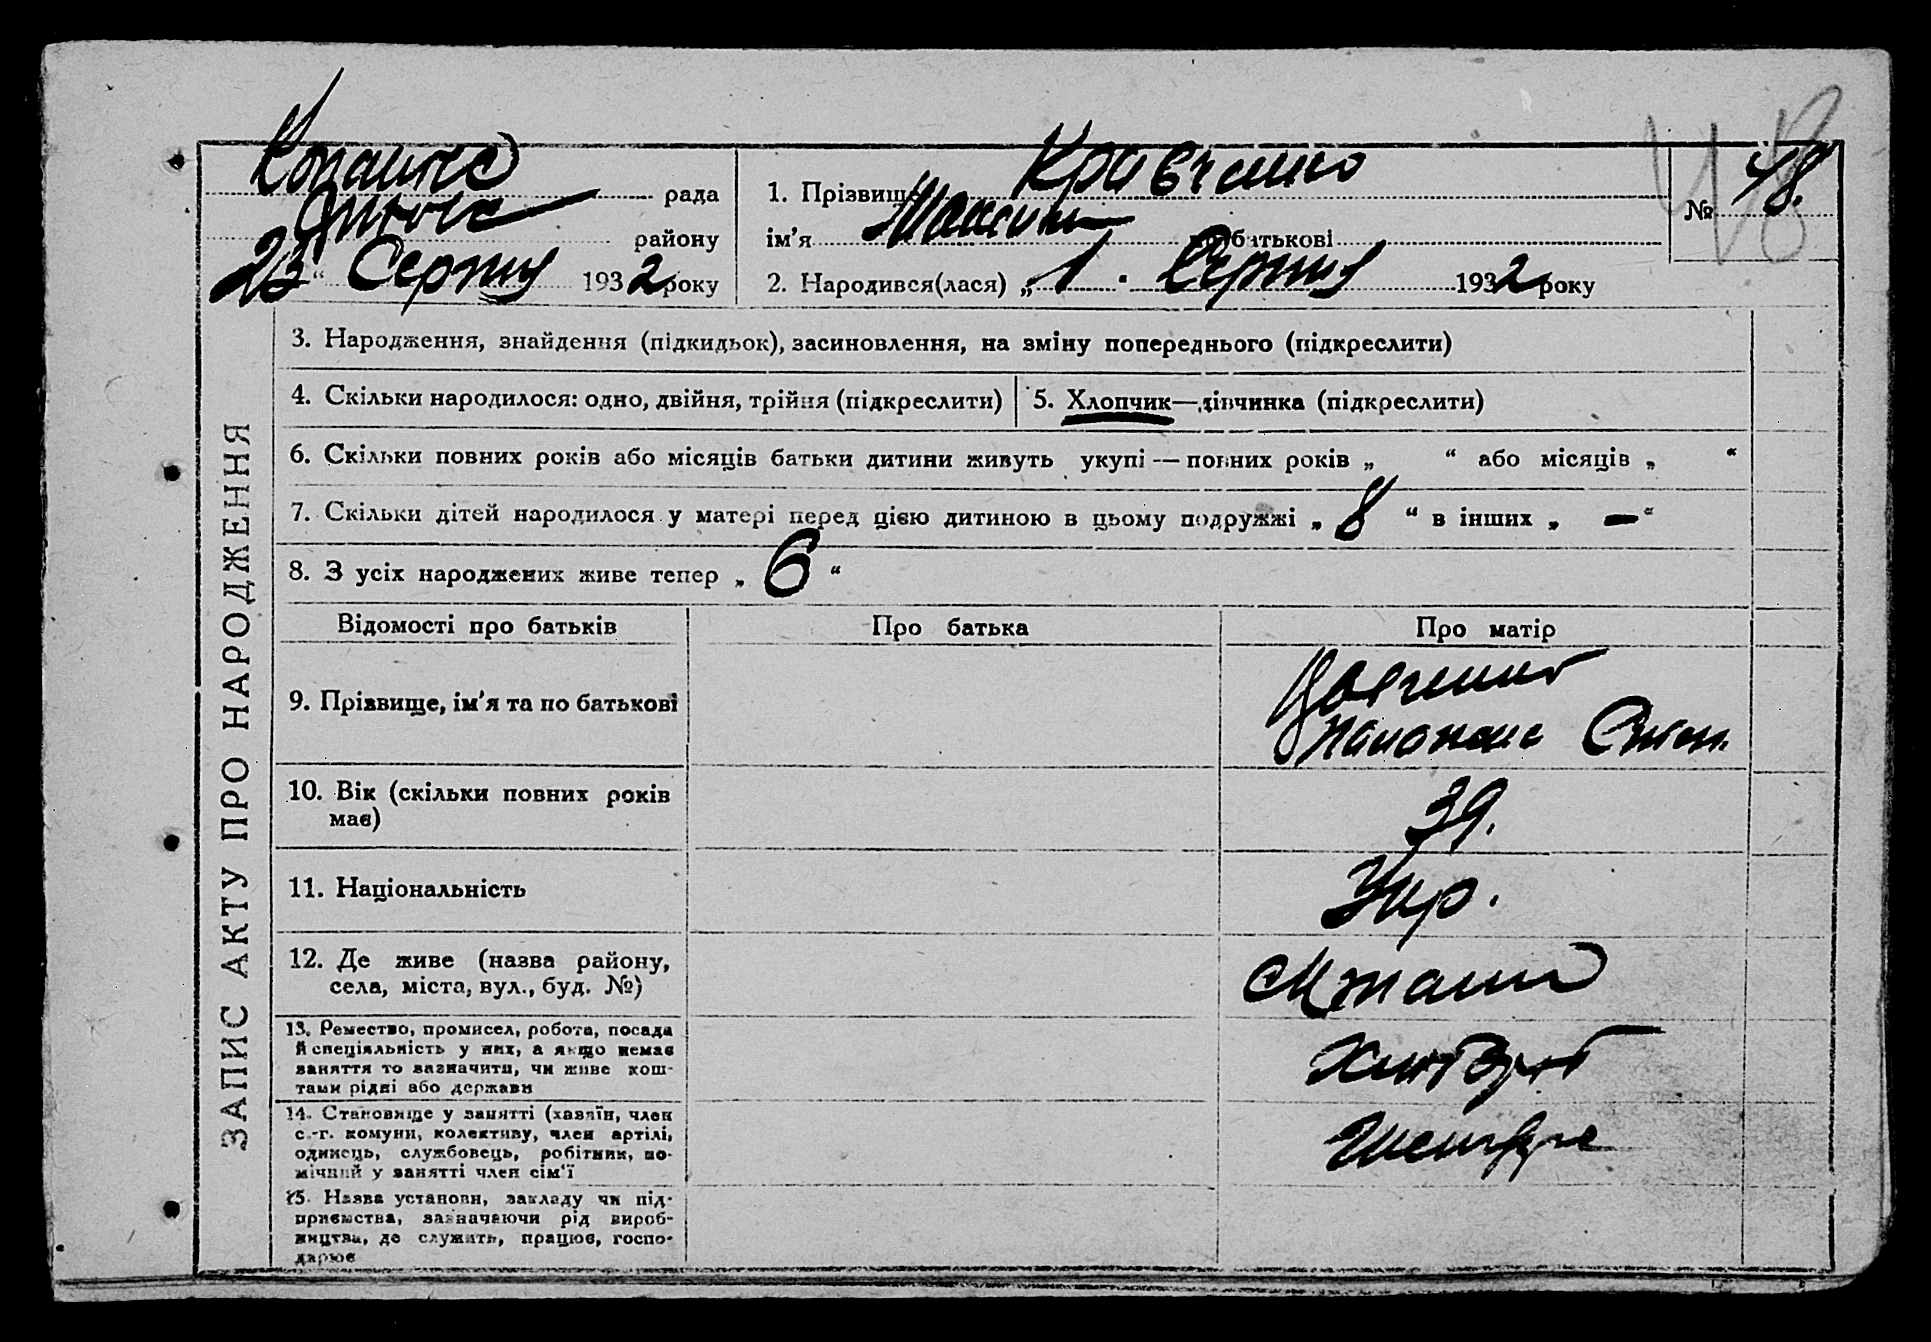 ЗАПИС АКТУ ПРО НАРОДЖЕННЯ
рада
району
23 " Серпня 1932 року
1. Прізвище Кравченко
ім'я Максим по батькові
2. Народився(лася) „ 1 . Серпня 1932 року
№ 48.
48
3. Народження, знайдення (підкидьок), засиновлення, на зміну попереднього (підкреслити)
4. Скільки народилося: одно, двійня, трійня (підкреслити)
5. Хлопчик—дівчинка (підкреслити)
6. Скільки повних років або місяців батьки дитини живуть укупі — повних років „ “ або місяців „ “
7. Скільки дітей народилося у матері перед цією дитиною в цьому подружжі „ 8 “ в інших „ — “
8. З усіх народжених живе тепер „ 6 “
Відомості про батьків
Про батька
Про матір
9. Прізвище, ім'я та по батькові
10. Вік (скільки повних років
має)
39.
11. Національність
Укр.
12. Де живе (назва району,
села, міста, вул., буд. №)
13. Ремество, промисел, робота, посада
й спеціяльність у них, а якщо немає
заняття то зазначити, чи живе кош-
тами рідні або держави
14. Становище у занятті (хазяїн, член
с.-г. комуни, колективу, член артілі,
одинець, службовець, робітник, по-
мічний у занятті член сім'ї
15. Назва установи, закладу чи під-
приємства, зазначаючи рід вироб-
ництва, де служить, працює, госпо-
дарює